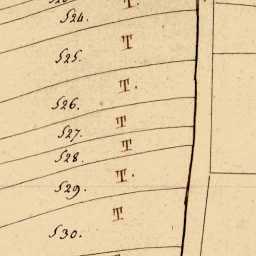 524. T.
525. T
526. T
527. T
528. T
529. T.
530. T